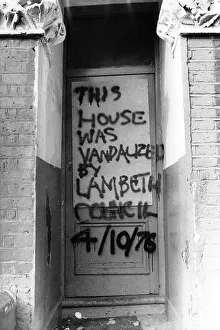 THIS
HOUSE
WAS
VANDALIZED
BY
LAMBETH
COUNCIL
4/10/76